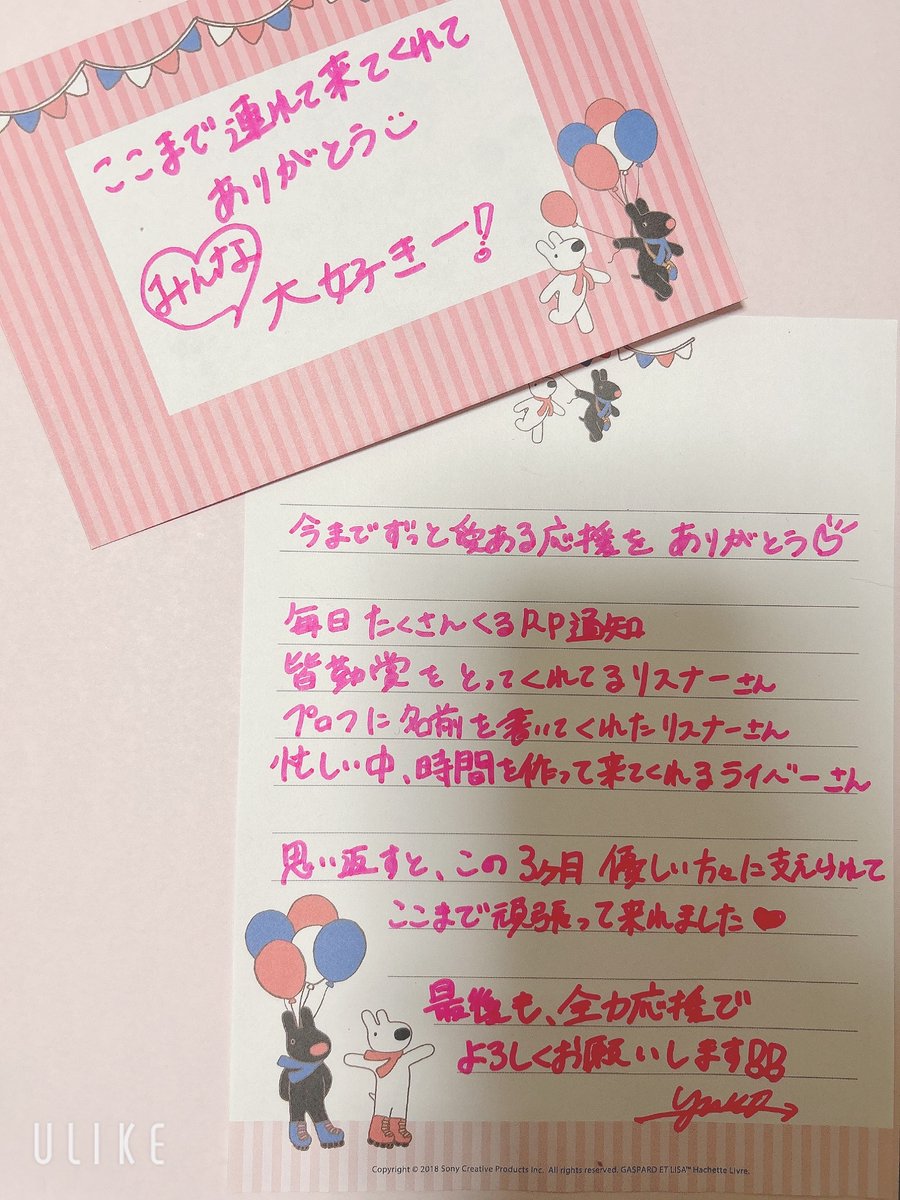 ここまで連れて来てくれて
ありがとう
みんな
大好きー!
今までずっと愛ある応援を ありがとう
毎日 たくさんくるRP通知
皆勤賞を とってくれてるリスナーさん
プロフに名前を書いてくれたリスナーさん
忙しい中、時間を作って来てくれるライバーさん
思い返すと、この3ヶ月 優しい方々に支えられて
ここまで頑張って来れました
最後も、全力応援で
よろしくお願いします
ULIKE
Copyright © 2018 Sony Creative Products Inc. All rights reserved. GASPARD ET LISA™ Hachette Livre.